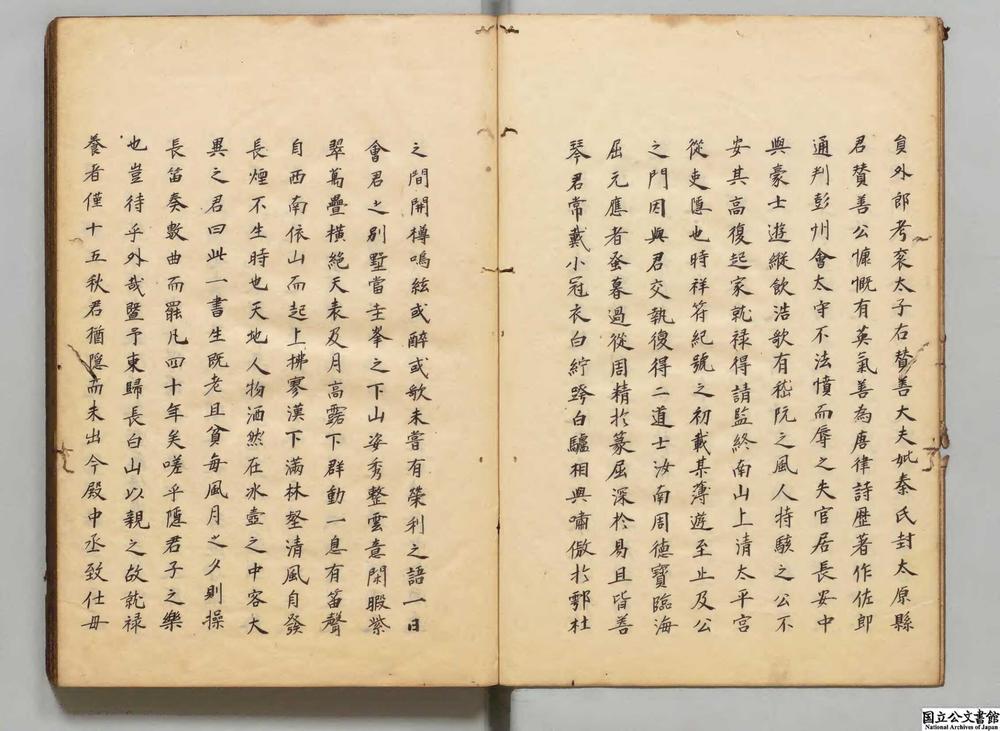 負外郎考衮太子右贊善大夫妣秦氏封太原縣
君贊善公慷慨有英氣善為唐律詩歷著作佐郎
通判彭州會太守不法憤而辱之失官居長安中
與豪士遊縱飲浩歌有嵇阮之風人持駭之公不
安其高復起家就祿得請監終南山上清太平宮
從吏隱也時祥符紀號之初載某薄遊至止及公
之門因與君交執復得二道士汝南周德寶臨海
屈元應者蚤暮過從周精扵篆屈深扵易且皆善
琴君常戴小冠衣白紵跨白驢相與嘯傲扵鄠杜
之間開樽鳴絃或醉或歌未嘗有榮利之語一日
會君之別墅當圭峯之下山姿秀整雲意閑暇紫
翠萬疊橫絕天表及月高露下群動一息有笛聲
自西南依山而起上拂寥漢下滿林壑清風自發
長煙不生時也天地人物洒然在冰壺之中客大
異之君曰此一書生既老且貧每風月之夕則操
長笛奏數曲而罷凡四十年矣嗟乎隱君子之樂
也豈待乎外哉暨予東歸長白山以親之故就祿
養者僅十五秋君猶隱而未出今殿中丞致仕毋
国立公文書館
National Archives of Japan